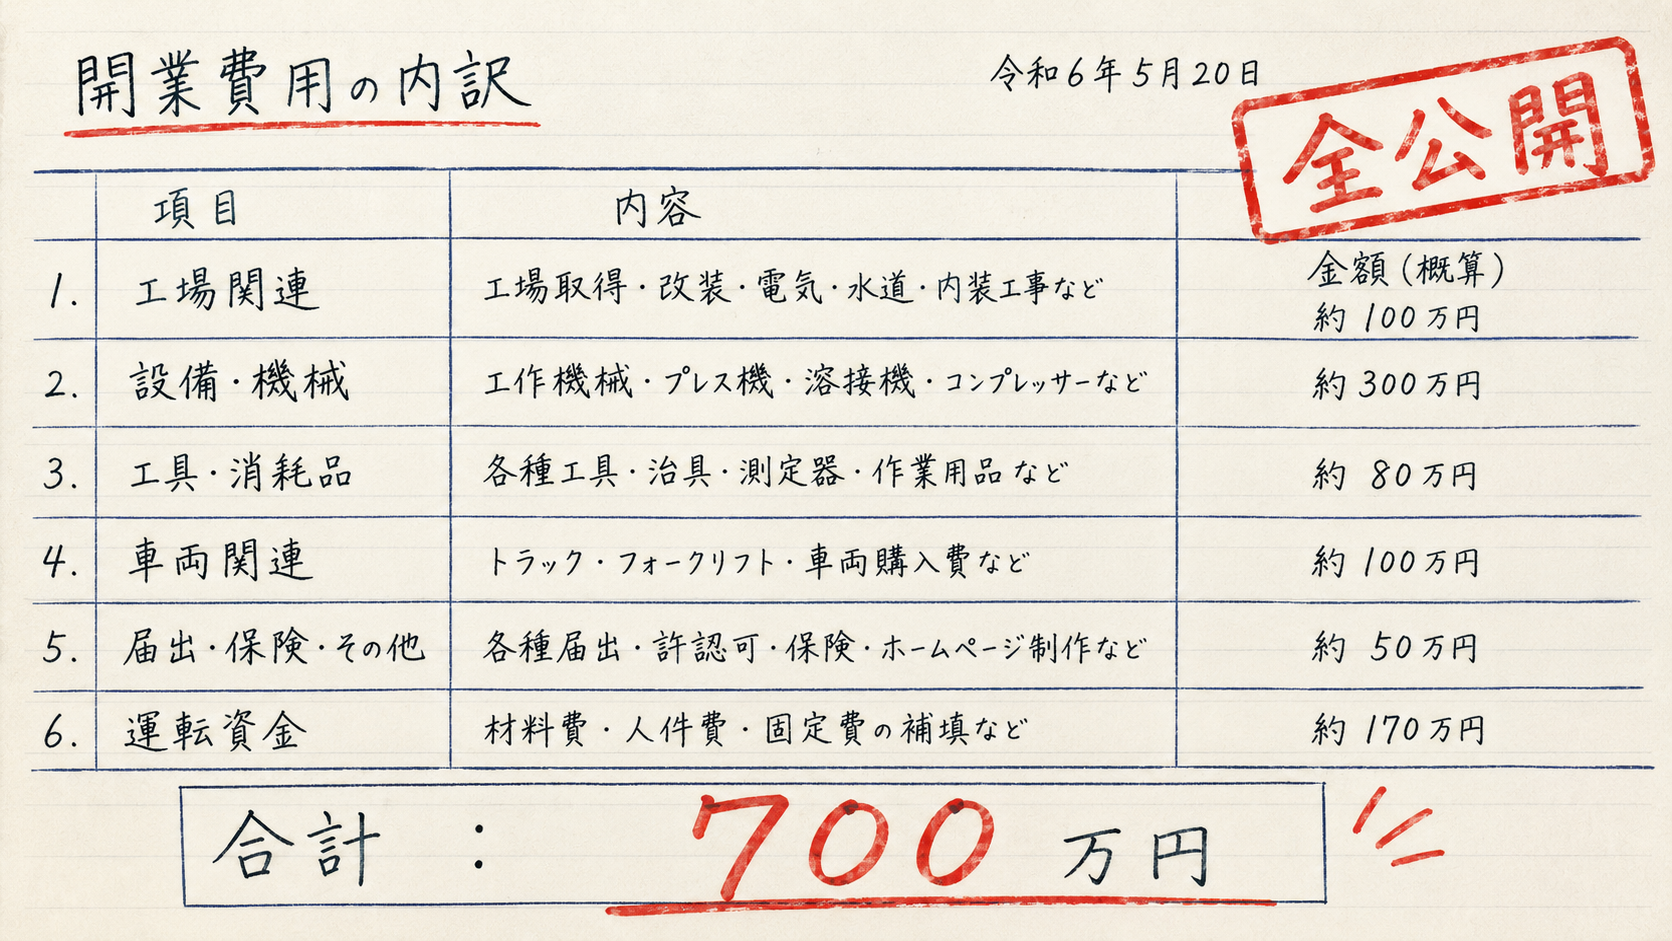 開業費用の内訳
令和6年5月20日
全公開
項目 内容
金額(概算)
1. 工場関連 工場取得・改装・電気・水道・内装工事など 約100万円
2. 設備・機械 工作機械・プレス機・溶接機・コンプレッサーなど 約300万円
3. 工具・消耗品 各種工具・治具・測定器・作業用品など 約80万円
4. 車両関連 トラック・フォークリフト・車両購入費など 約100万円
5. 届出・保険・その他 各種届出・許認可・保険・ホームページ制作など 約50万円
6. 運転資金 材料費・人件費・固定費の補填など 約170万円
合計 : 700万円